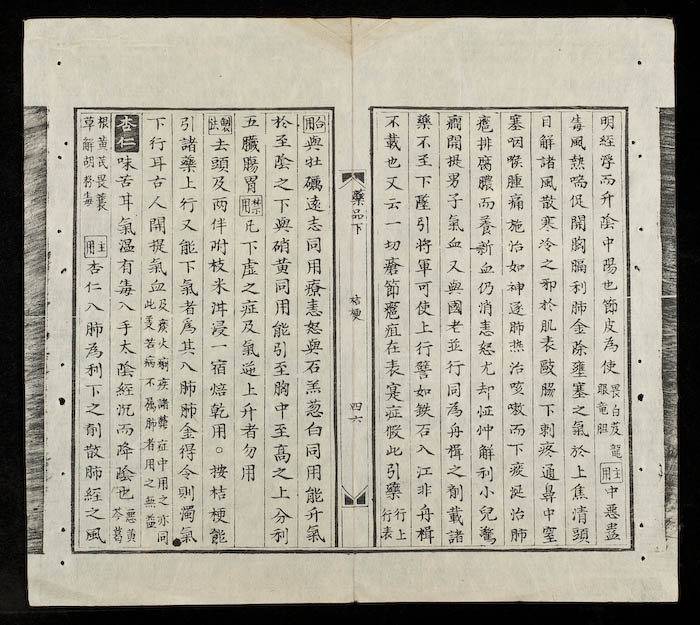 明經浮而升陰中陽也節皮為使畏白芨龍眼竜胆主用中惡蠱
毒風熱喘促開胸膈利肺金除壅塞之氣於上焦清頭
目解諸風散寒冷之邪於肌表敺腸下刺疼通鼻中窒
塞咽喉腫痛施治如神逐肺热治咳嗽而下痰涎治肺
癰排腐膿而養新血仍消恚怒尤却怔忡解利小兒驚
癎開提男子氣血又與國老並行同為舟楫之劑載諸
藥不至下墜引將軍可使上行譬如鉄石入江非舟楫
不載也又云一切瘡節癰疽在表寔症假此引藥行上行表
藥品下
桔梗
四六
合用與牡礪遠志同用療恚怒與石羔葱白同用能升氣
於至陰之下與硝黃同用能引至胸中至高之上分利
五臟腸胃禁用凡下虛之症及氣逆上升者勿用
製法去頭及两伴附枝米泔浸一宿焙乾用○按桔梗能
引諸藥上行又能下氣者為其入肺肺金得令則濁氣
下行耳古人開提氣血及痰火痢疾諸欝症中用之亦同此義若病不属肺者用之無益
杏仁味苦耳氣溫有毒入手太陰經沉而降陰也惡黃芩葛
根黃芪畏蘘草解胡粉毒主用杏仁入肺為利下之劑散肺經之風